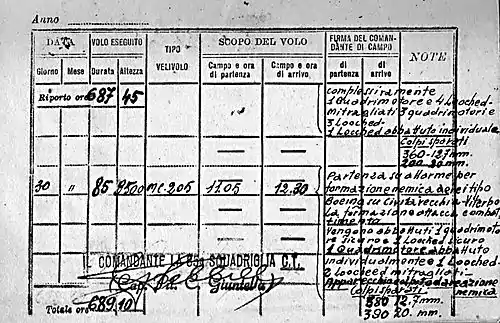 Anno
DATA VOLO ESEGUITO TIPO VELIVOLO SCOPO DEL VOLO FIRMA DEL COMANDANTE DI CAMPO NOTE
Giorno Mese Durata Altezza Campo e ora di partenza Campo e ora di arrivo di partenza di arrivo
Riporto ore 687 45
complessivamente
1 Quadrimotore e 4 Looched-
mitragliati 3 quadrimotori e
3 Looched-
1 Looched abbattuto individuale
Colpi sparati
360-12,7 mm.
200-20 mm.
30 " 85 9500 MC.205 11.05 12.30
Partenza su allarme per
formazione nemica aerei tipo
Boeing su Civitavecchia-Viterbo
La formazione attacca combat
timento
Vengono abbattuti 1 quadrimoto
re sicuro e 2 Looked sicuro
1 Quadrimotore abbattuto
individualmente e 1 Looched-
2 Loocheed mitragliati-
Apparecchio colpito da reazione
nemica
Colpi sparati
350 12.7 mm.
390 20 mm.
COMANDANTE LA SQUADRIGLIA C.T.
(Cap. Pil. C. Giuntella)
Totale ore 689,10